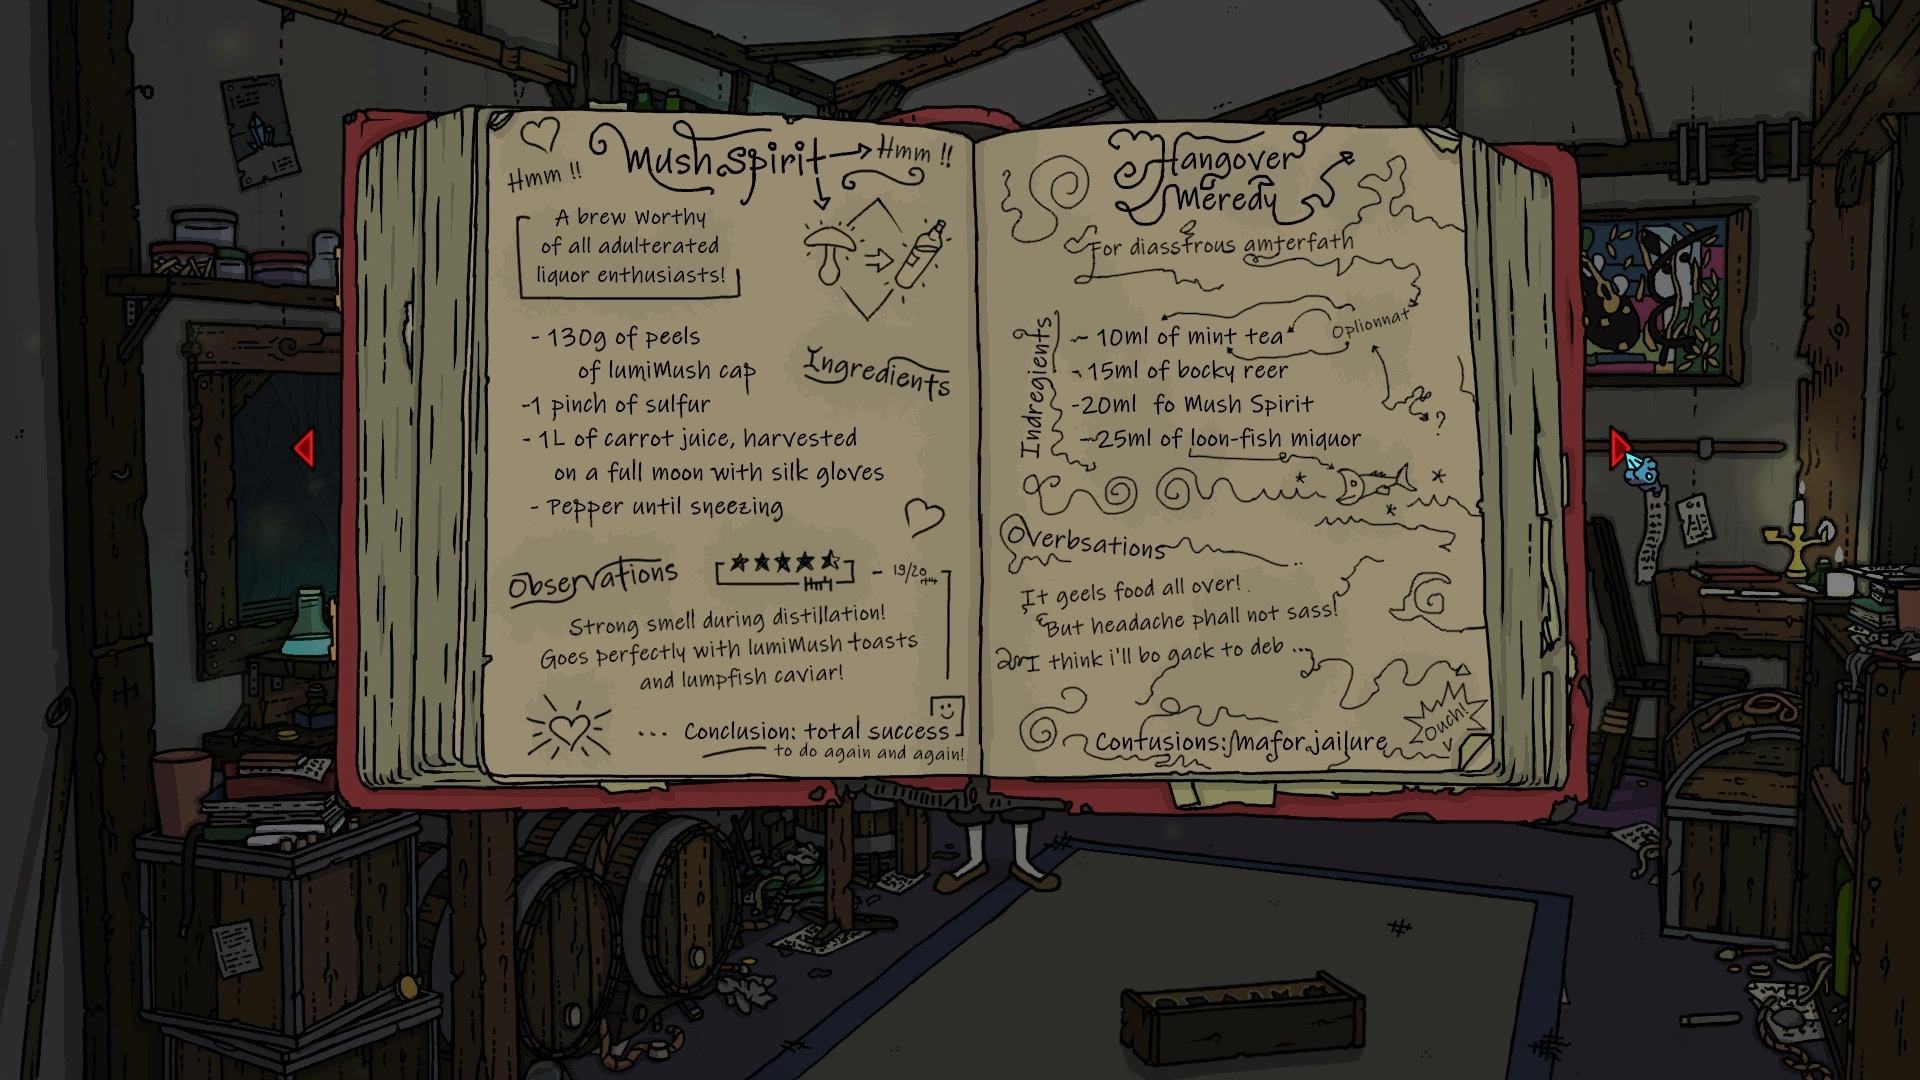 Mush Spirit
Hmm !!
Hmm !!
A brew worthy
of all adulterated
liquor enthusiasts!
- 130g of peels
of lumiMush cap
Ingredients
-1 pinch of sulfur
- 1L of carrot juice, harvested
on a full moon with silk gloves
- Pepper until sneezing
Observations
- 19/20
Strong smell during distillation!
Goes perfectly with lumiMush toasts
and lumpfish caviar!
... Conclusion: total success
to do again and again!
Hangover
Meredy
For diasstrous amterfath
Indregients
- 10ml of mint tea
Oplionnat
- 15ml of bocky reer
-20ml fo Mush Spirit
?
-25ml of loon-fish miquor
Overbsations
It geels food all over!
But headache phall not sass!
I think i'll bo gack to deb ...
Confusions: mafor jailure
Ouch!